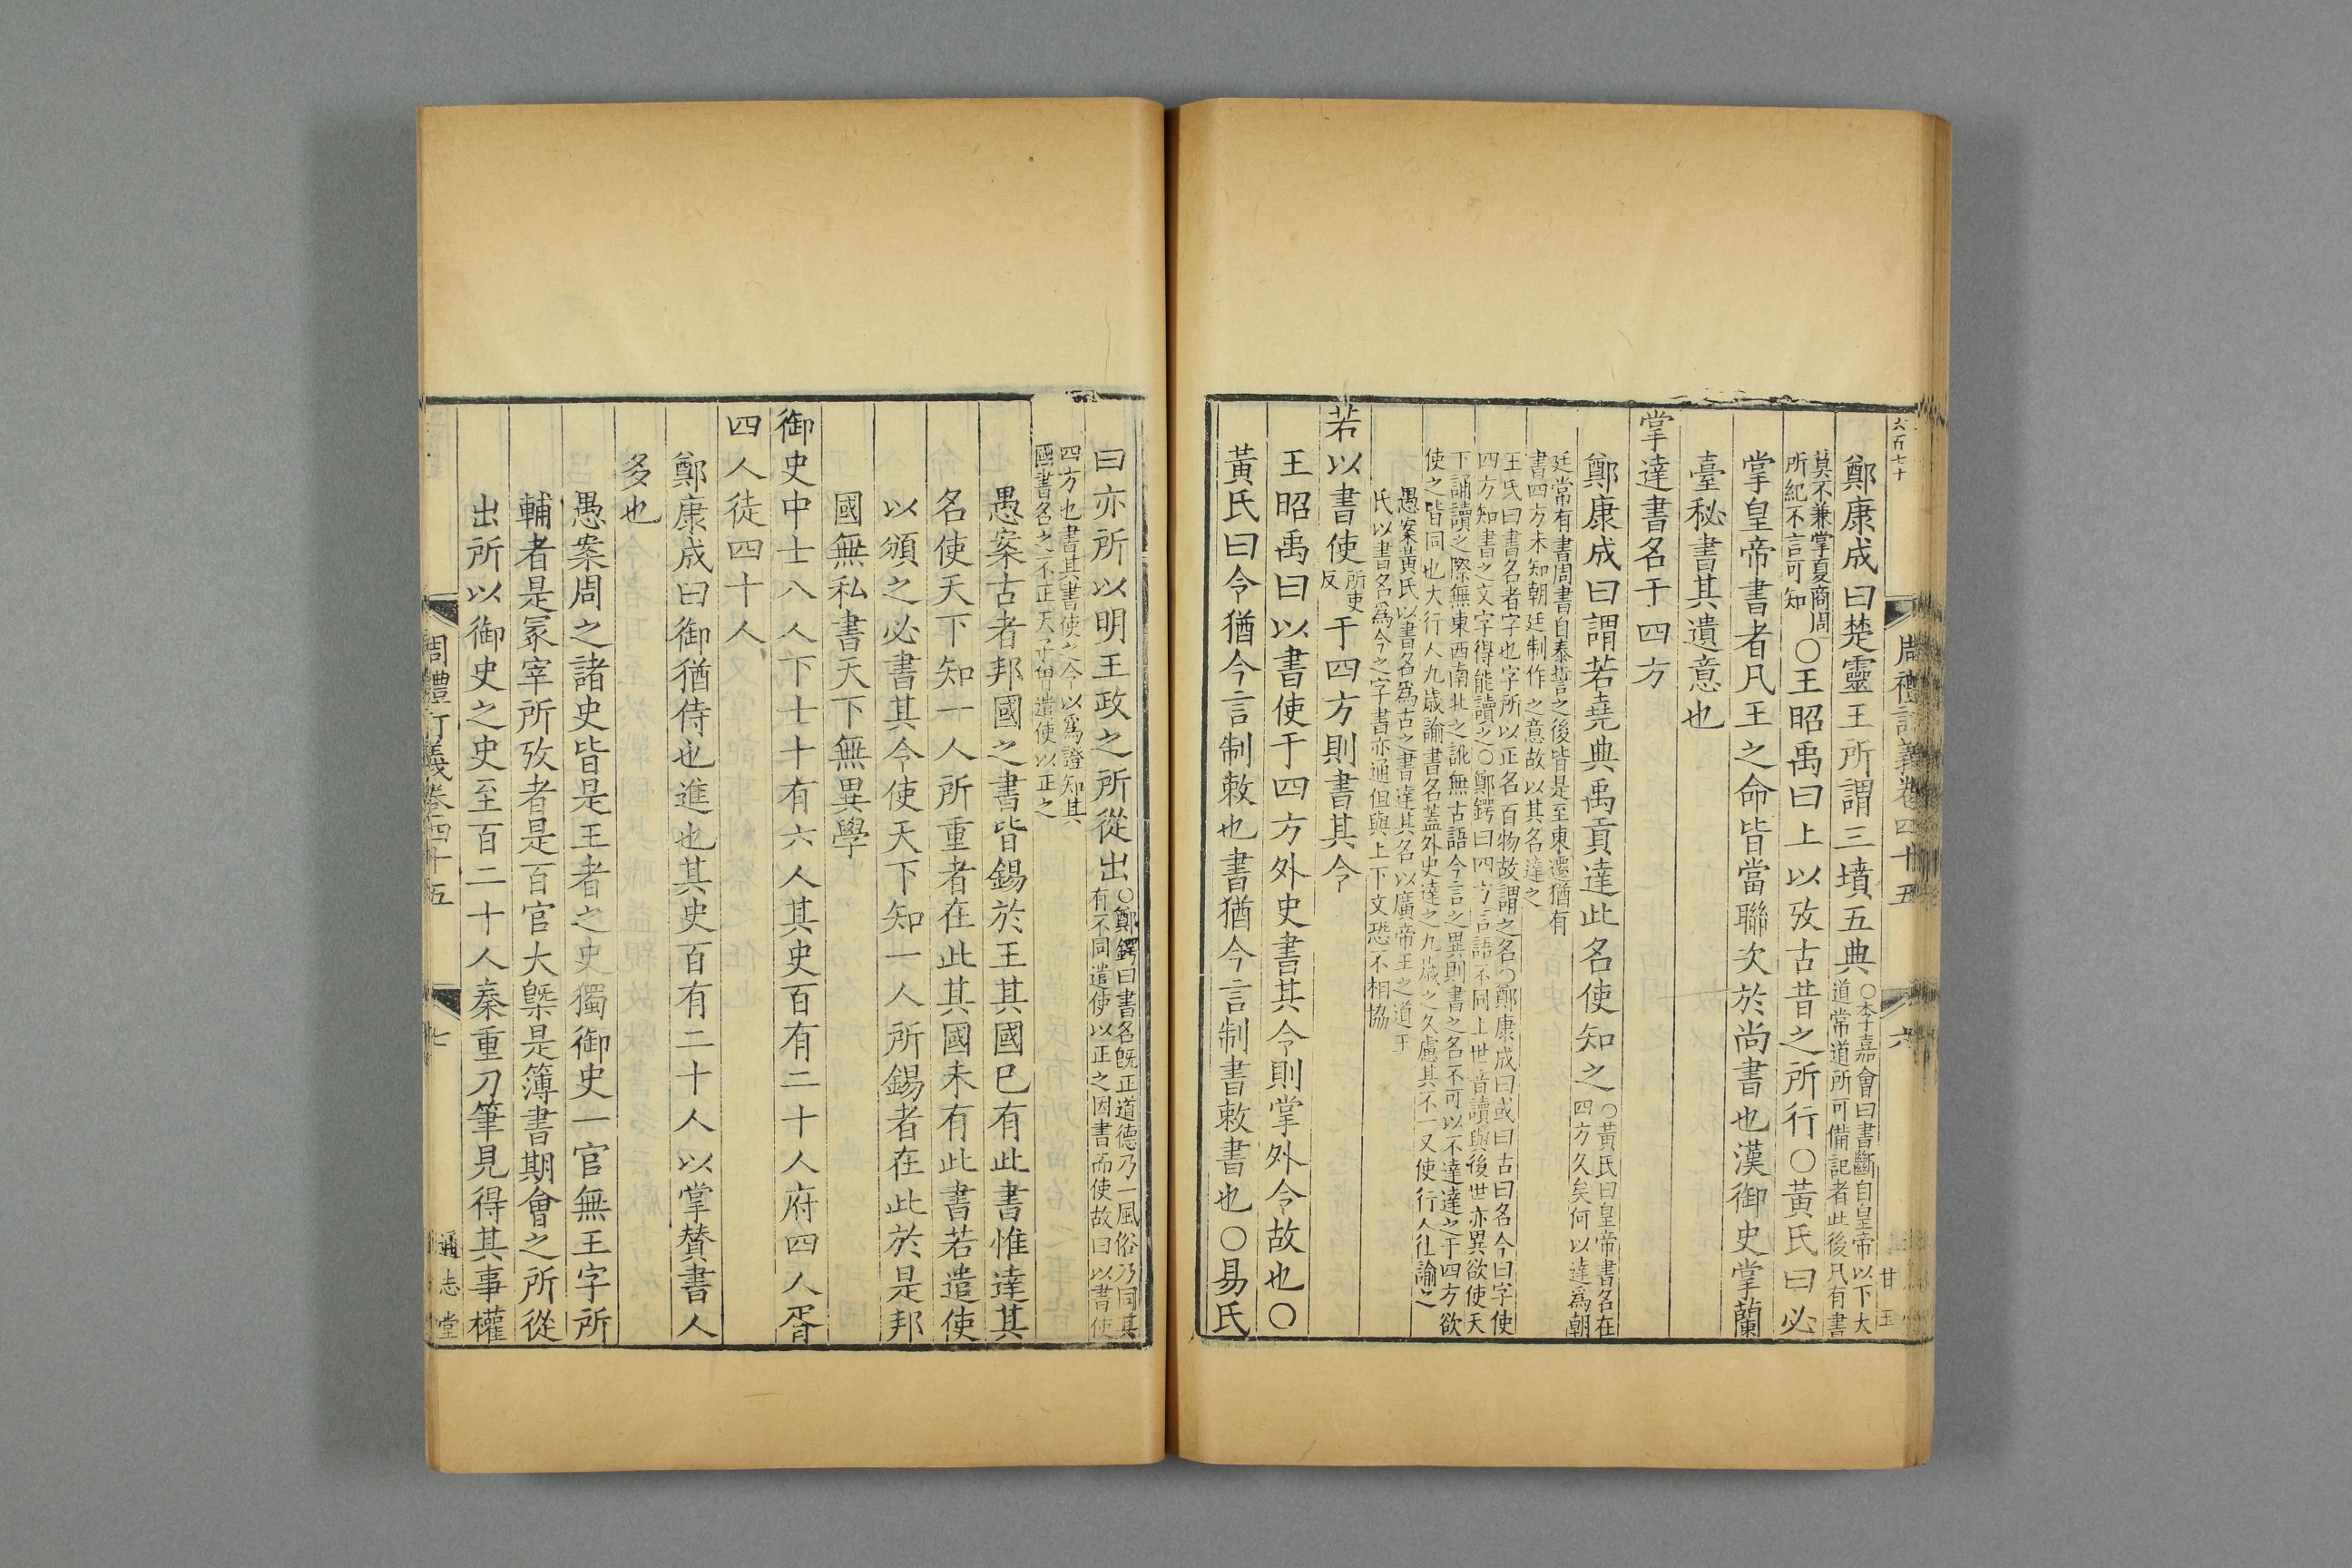 六百七十
周禮訂義卷四十五
六
甘
玉
鄭康成曰楚靈王所謂三墳五典○李嘉會曰書斷自皇帝以下大道常道所可備記者此後凡有書
莫不兼掌夏商周所紀不言可知○王昭禹曰上以攷古昔之所行○黃氏曰必
掌皇帝書者凡王之命皆當聯次於尚書也漢御史掌蘭
臺秘書其遺意也
掌達書名于四方
鄭康成曰謂若堯典禹貢達此名使知之○黃氏曰皇帝書名在四方久矣何以達為朝
廷常有書周書自泰誓之後皆是至東遷猶有
書四方未知朝廷制作之意故以其名達之
王氏曰書名者字也字所以正名百物故謂之名○鄭康成曰或曰古曰名今曰字使
四方知書之文字得能讀之○鄭鍔曰四方言語不同上世音讀與後世亦異欲使天
下誦讀之際無東西南北之訛無古語今言之異則書之名不可以不達達之于四方欲
使之皆同也大行人九歲諭書名蓋外史達之九歲之久慮其不一又使行人往諭之
愚案黃氏以書名為古之書達其名以廣帝王之道王
氏以書名為今之字書亦通但與上下文恐不相協
若以書使所吏反于四方則書其令
王昭禹曰以書使于四方外史書其令則掌外令故也○
黃氏曰令猶今言制敕也書猶今言制書敕書也○易氏
曰亦所以明王政之所從出○鄭鍔曰書名旣正道德乃一風俗乃同其有不同遣使以正之因書而使故曰以書使
四方也書其書使之令以為證知其
國書名之不正天子曾遣使以正之
愚案古者邦國之書皆錫於王其國巳有此書惟達其
名使天下知一人所重者在此其國未有此書若遣使
以頒之必書其令使天下知一人所錫者在此於是邦
國無私書天下無異學
御史中士八人下士十有六人其史百有二十人府四人胥
四人徒四十人
鄭康成曰御猶侍也進也其史百有二十人以掌贊書人
多也
愚案周之諸史皆是王者之史獨御史一官無王字所
輔者是冢宰所攷者是百官大槩是簿書期會之所從
出所以御史之史至百二十人秦重刀筆見得其事權
周禮訂義卷四十五
七
通志堂